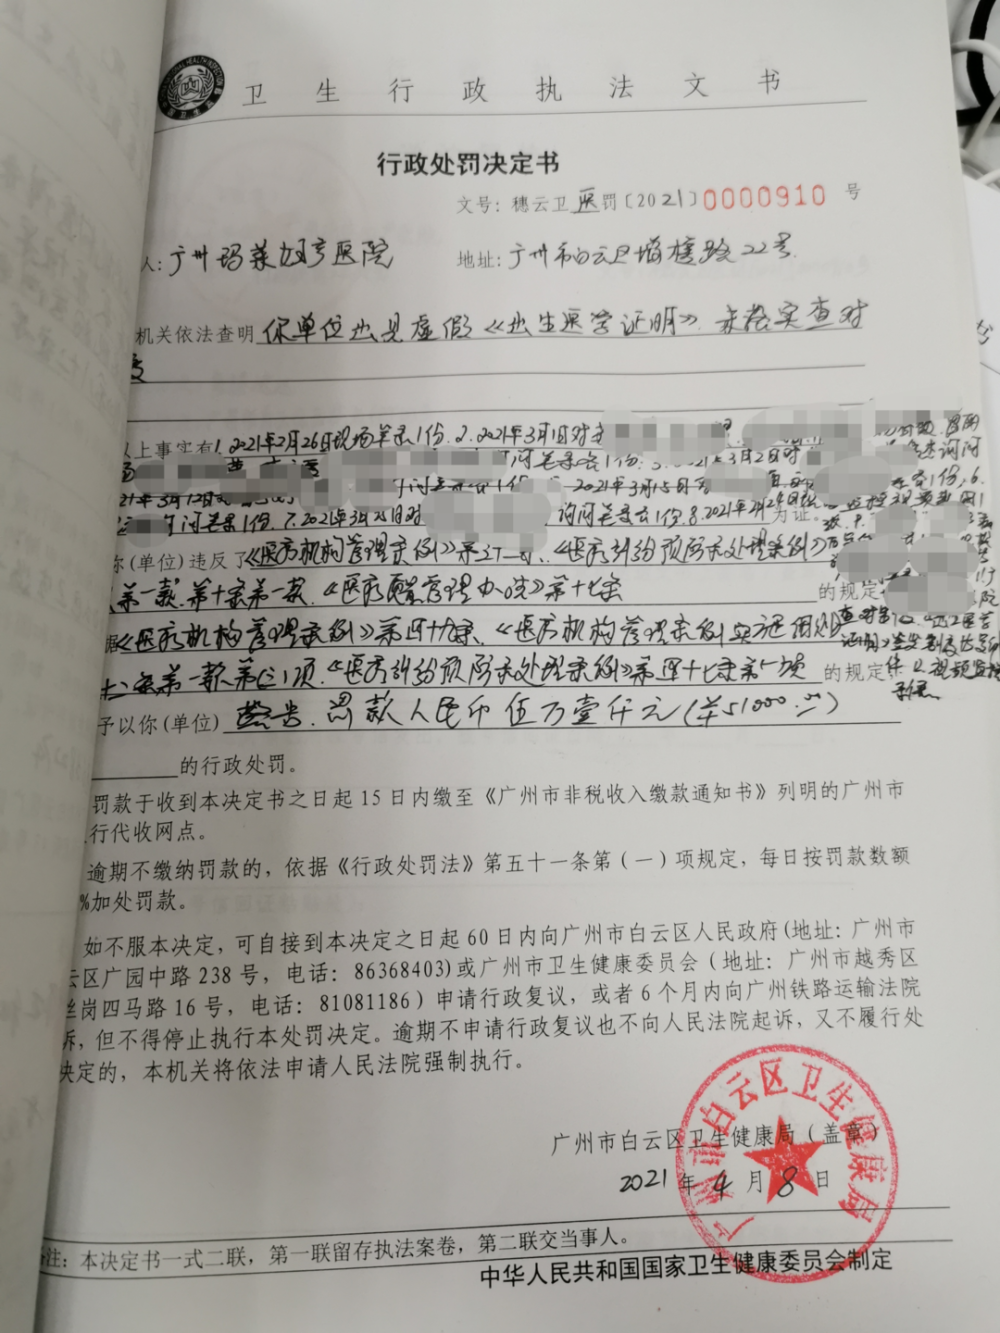 卫生行政执法文书
行政处罚决定书
文号：穗云卫 医 罚〔2021〕0000910 号
人：广州玛莱妇亨医院 地址：广州市白云区增槎路22号
机关依法查明 你单位出具虚假《出生医学证明》、未落实查对
以上事实有 1.2021年2月26日现场笔录1份 2.2021年3月1日对
询问笔录各1份 2021年3月2日对
2021年3月12日 询问笔录1份 2021年3月15日
询问笔录1份.7.2021年3月25日对 询问笔录各1份 8.2021年2月24日 为证。
你(单位)违反了《医疗机构管理条例》第三十一条、《医疗纠纷预防和处理条例》
第一款、第十条第一款、《医疗质量管理办法》第十七条 的规定
据《医疗机构管理条例》第四十九条、《医疗机构管理条例实施细则》
条第一款第(三)项、《医疗纠纷预防和处理条例》第四十七条第一项 的规定
予以你(单位) 警告、罚款人民币伍万壹仟元(￥51000.00)
的行政处罚。
罚款于收到本决定书之日起15日内缴至《广州市非税收入缴款通知书》列明的广州市
行代收网点。
逾期不缴纳罚款的，依据《行政处罚法》第五十一条第（一）项规定，每日按罚款数额
%加处罚款。
如不服本决定，可自接到本决定之日起60日内向广州市白云区人民政府(地址：广州市
云区广园中路238号，电话：86368403)或广州市卫生健康委员会（地址：广州市越秀区
丝岗四马路16号，电话：81081186）申请行政复议，或者6个月内向广州铁路运输法院
诉，但不得停止执行本处罚决定。逾期不申请行政复议也不向人民法院起诉，又不履行处
决定的，本机关将依法申请人民法院强制执行。
广州市白云区卫生健康局（盖章）
2021年4月8日
广州市白云区卫生健康局
注：本决定书一式二联，第一联留存执法案卷，第二联交当事人。
中华人民共和国国家卫生健康委员会制定